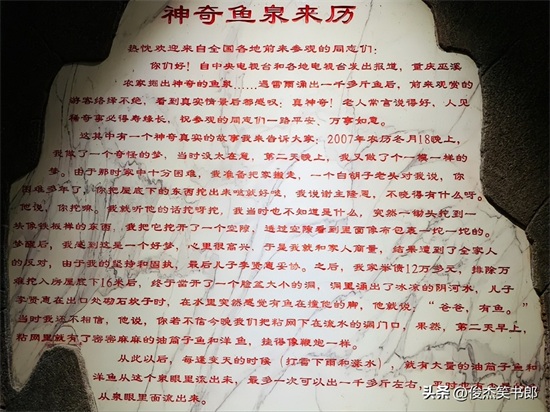 神奇鱼泉来历
热忱欢迎来自全国各地前来参观的同志们:
你们好!自中央电视台和各地电视台发出报道,重庆巫溪
农家掘出神奇的鱼泉……遇雷雨涌出一千多斤鱼后,前来观赏的
游客络绎不绝,看到真实情景后都感叹:真神奇!老人常言说得好,人见
稀奇事必得寿缘长,祝参观的同志们一路平安、万事如意。
这其中有一个神奇真实的故事我来告诉大家:2007年农历冬月18晚上,
我做了一个奇怪的梦,当时没太在意,第二天晚上,我又做了个一模一样的
梦。由于那时家中十分困难,我准备把家搬走,一个白胡子老头对我说,你
困难多年了,你把屋底下的东西挖出来啥就好啥,我说谢主隆恩,不晓得有什么呀。
他说,你挖嘛。我就听他的话挖呀挖,我当时也不知道是什么,突然一锄头挖到一
块像铁板样的东西,我把它挖开了一个空隙,透过空隙看到里面像布包裹一坨一坨的。
梦醒后,我感到这是一个好梦,心里很高兴,于是我就和家人商量,结果遭到了全家人
的反对,由于我的坚持和固执,最后儿子李贤惠妥协。之后,我家举债12万多元,排除万
难挖人房屋底下16米后,终于凿开了一个脸盆大小的洞,洞里涌出了冰凉的阴河水,儿子
李贤惠在出口处砌石坎子时,在水里突然感觉有鱼在撞他的脚,他就说:“爸爸,有鱼。”
当时我还不相信,他说,你若不信今晚我们把粘网下在流水的洞门口,果然,第二天早上,
粘网里就有了密密麻麻的油筒子鱼和洋鱼,挂得像鞭炮一样。
从此以后,每逢变天的时候(打雷下雨和涨水),就有大量的油筒子鱼和
洋鱼从这个泉眼里流出来,最多一次可以出一千多斤左右,
从泉眼里面流出来。
头条 @俊杰笑书郎